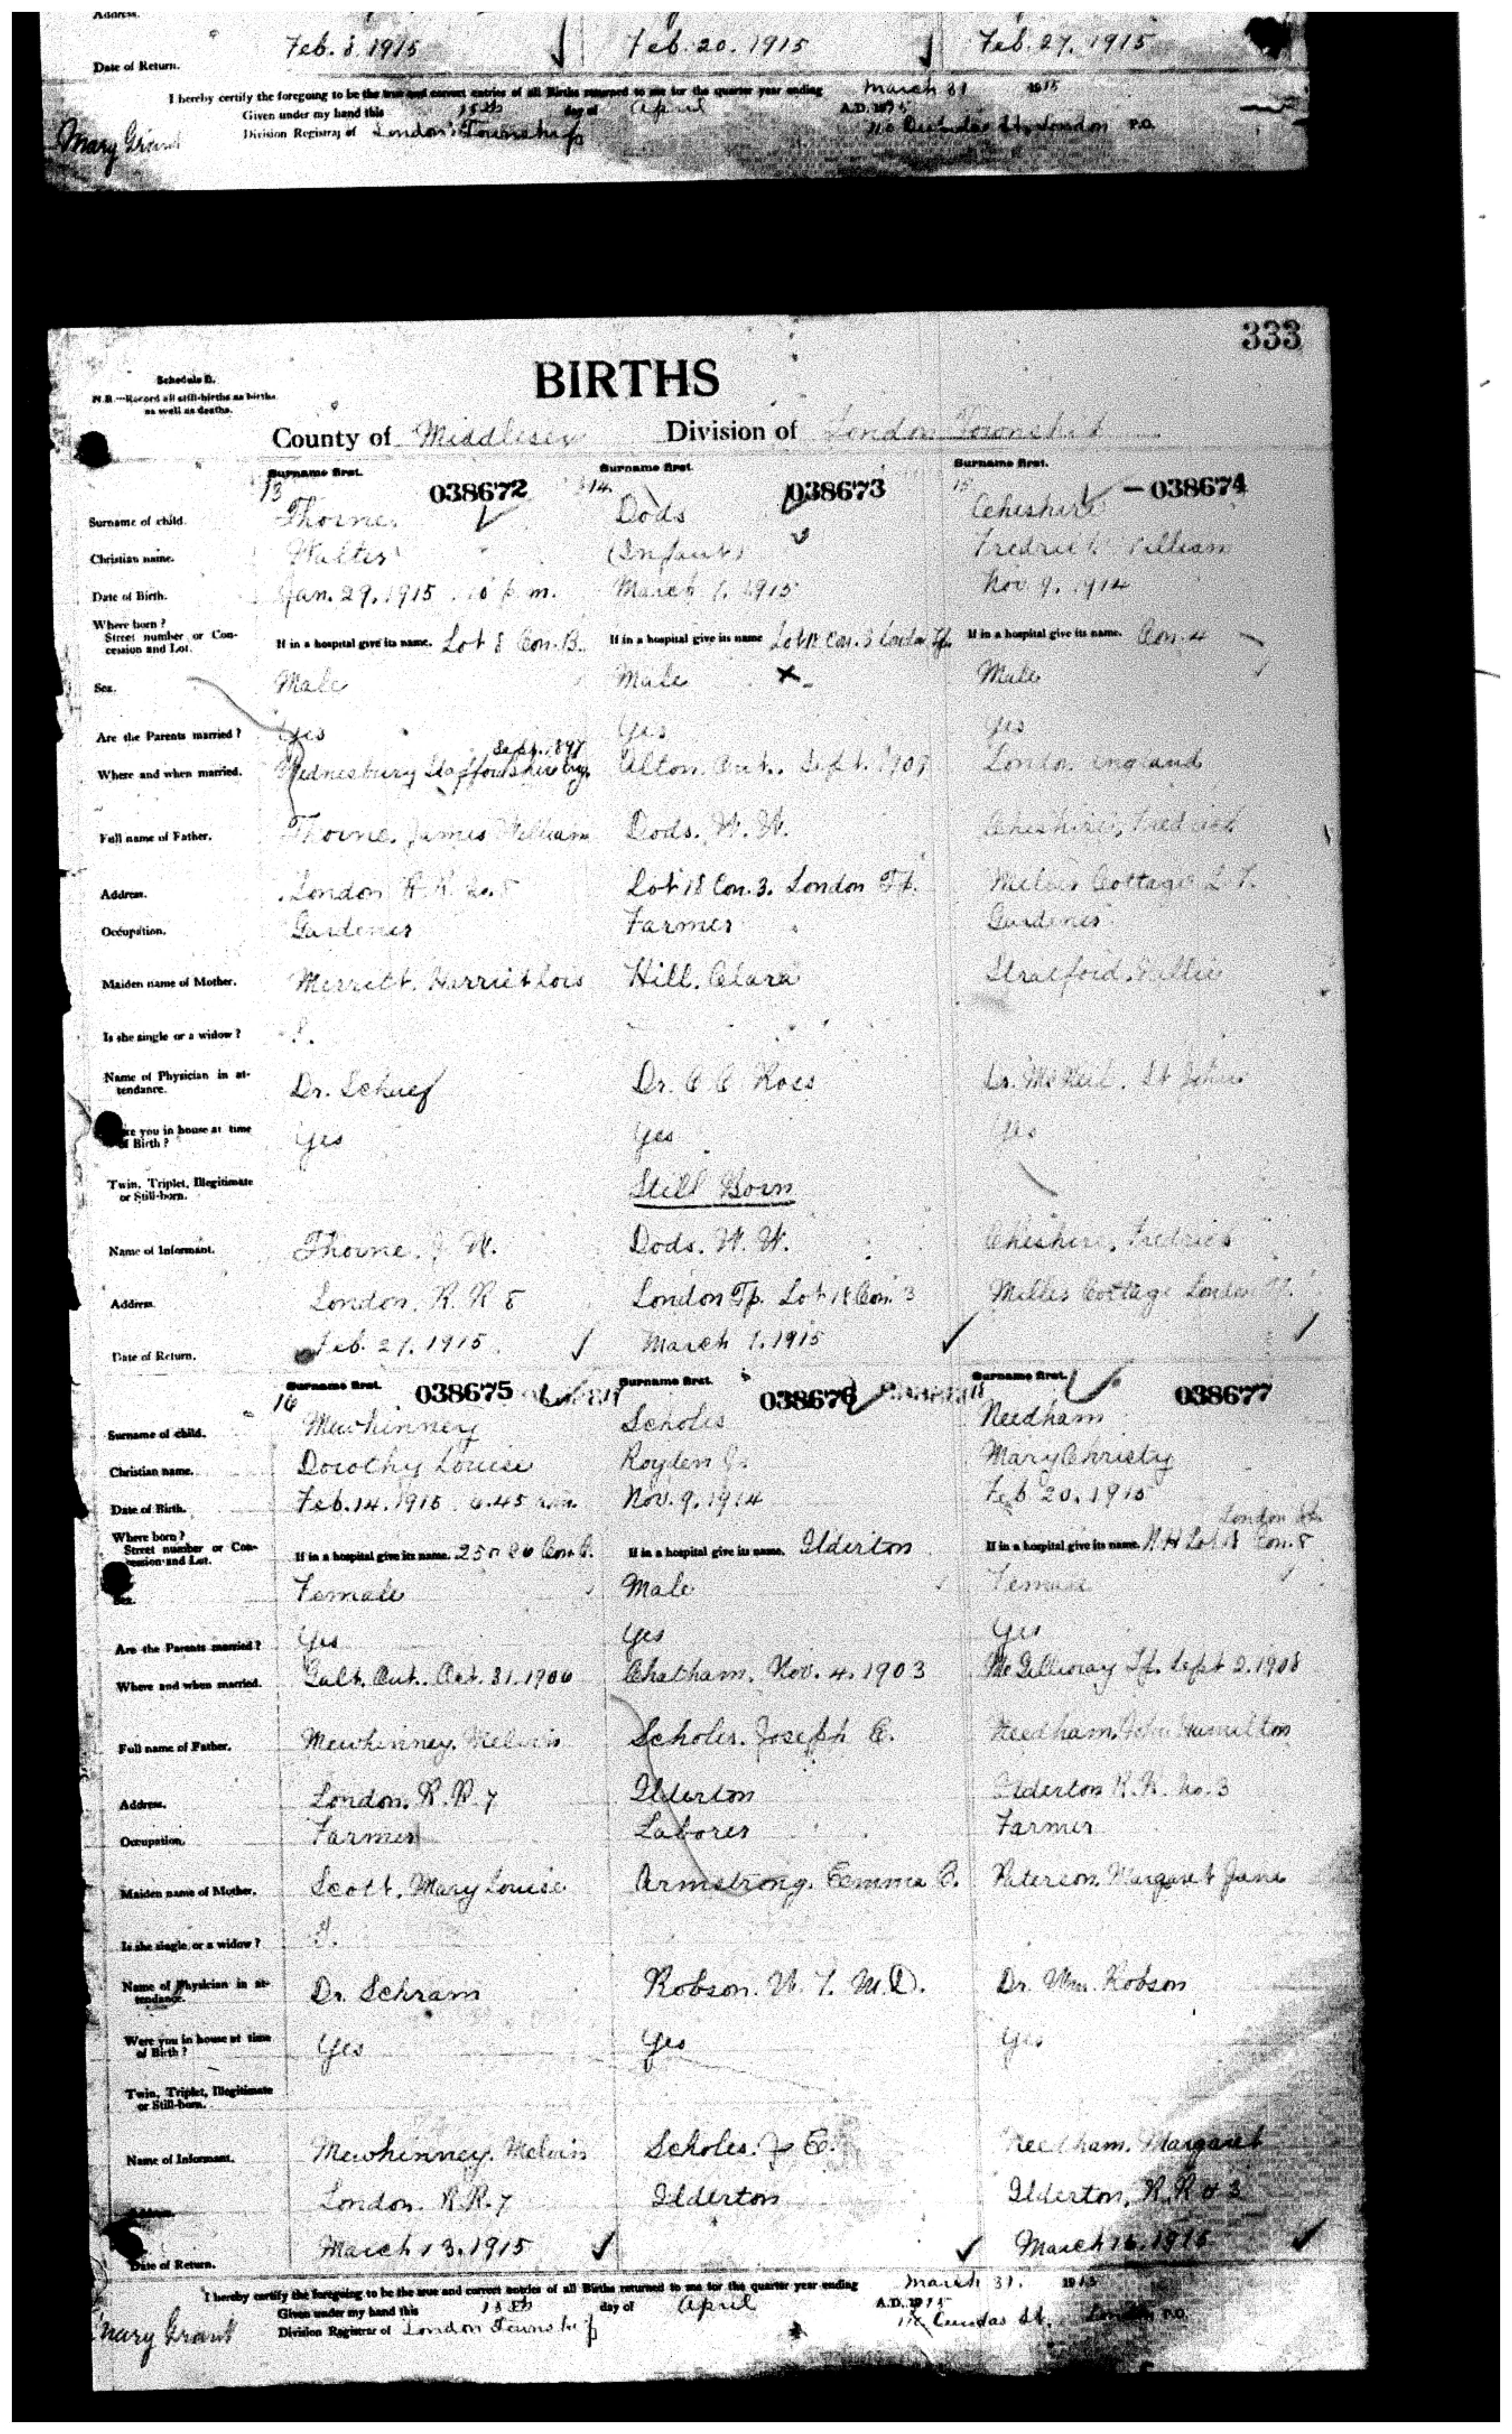 Address.
Date of Return. Feb. 8. 1915 Feb. 20. 1915 Feb. 27. 1915
I hereby certify the foregoing to be the true and correct entries of all Births returned to me for the quarter year ending March 31 1915
Given under my hand this 15th day of April A.D. 1915
Mary Grant Division Registrar of London Township Dundas St. London P.O.
333
Schedule B.
N.B.—Record all still-births as births
as well as deaths.
BIRTHS
County of Middlesex Division of London Township
Surname first. Surname first. Surname first.
13 038672 14 038673 15 038674
Surname of child. Thorne. Dods Cheshire
Christian name. Walter (Infant) Fredrick William
Date of Birth. Jan. 29. 1915. 10 p.m. March 1. 1915 Nov 9. 1914
Where born?
Street number or Concession and Lot. If in a hospital give its name. Lot 8 Con. B. If in a hospital give its name Lot 18 Con. 3 London Tp. If in a hospital give its name. Con. 4
Sex. Male Male Male
Are the Parents married? Yes Yes Yes
Sept. 1897
Where and when married. Wednesbury Staffordshire Eng. Alton. Ont. Sept. 1909 London England
Full name of Father. Thorne. James William Dods. W. W. Cheshire, Fredrick
Address. London R.R. No. 8 Lot 18 Con. 3. London Tp. Cottage L.T.
Occupation. Gardener Farmer Gardener
Maiden name of Mother. Merritt. Harriet Lois Hill. Clara Stratford. Nellie
Is she single or a widow?
Name of Physician in attendance. Dr. Dr. C C Ross Dr. McNeil. St Johns
Were you in house at time
of Birth? Yes Yes Yes
Twin, Triplet, Illegitimate
or Still-born. Still Born
Name of Informant. Thorne. J W. Dods. W. W. Cheshire, Fredrick
Address. London. R. R 8 London Tp. Lot 18 Con. 3 Cottage London
Date of Return. Feb. 27. 1915. March 1. 1915
Surname first. Surname first. Surname first.
16 038675 038676 18 038677
Surname of child. Mewhinney Scholes Needham
Christian name. Dorothy Louise Royden Mary Christy
Date of Birth. Feb. 14. 1915 6.45 a.m. Nov. 9. 1914 Feb 20. 1915
Where born? London Tp.
Street number or Concession and Lot. If in a hospital give its name. 25 Con. If in a hospital give its name. Ilderton If in a hospital give its name. N.H Lot 18 Con. 8
Sex. Female Male Female
Are the Parents married? Yes Yes Yes
Where and when married. Galt. Ont. Oct. 31. 1906 Chatham. Nov. 4. 1903 McGillivray Tp. Sept 2. 1908
Full name of Father. Mewhinney. Melvin Scholes. Joseph E. Needham. John Hamilton
Address. London. R. R. 7 Ilderton Ilderton R. R. No. 3
Occupation. Farmer Laborer Farmer
Maiden name of Mother. Scott. Mary Louise Armstrong. Emma Paterson. Margaret Jane
Is she single or a widow?
Name of Physician in attendance. Dr. Schram Robson. W. T. M.D. Dr. Wm. Robson
Were you in house at time
of Birth? Yes Yes Yes
Twin, Triplet, Illegitimate
or Still-born.
Name of Informant. Mewhinney. Melvin Scholes. J E. Needham. Margaret
Address. London. R.R. 7 Ilderton Ilderton, R. R 3
Date of Return. March 13. 1915 March 16. 1915
I hereby certify the foregoing to be the true and correct entries of all Births returned to me for the quarter year ending March 31. 1915
Given under my hand this 15th day of April A.D. 1915
Mary Grant Division Registrar of London Township Dundas St. London, P.O.